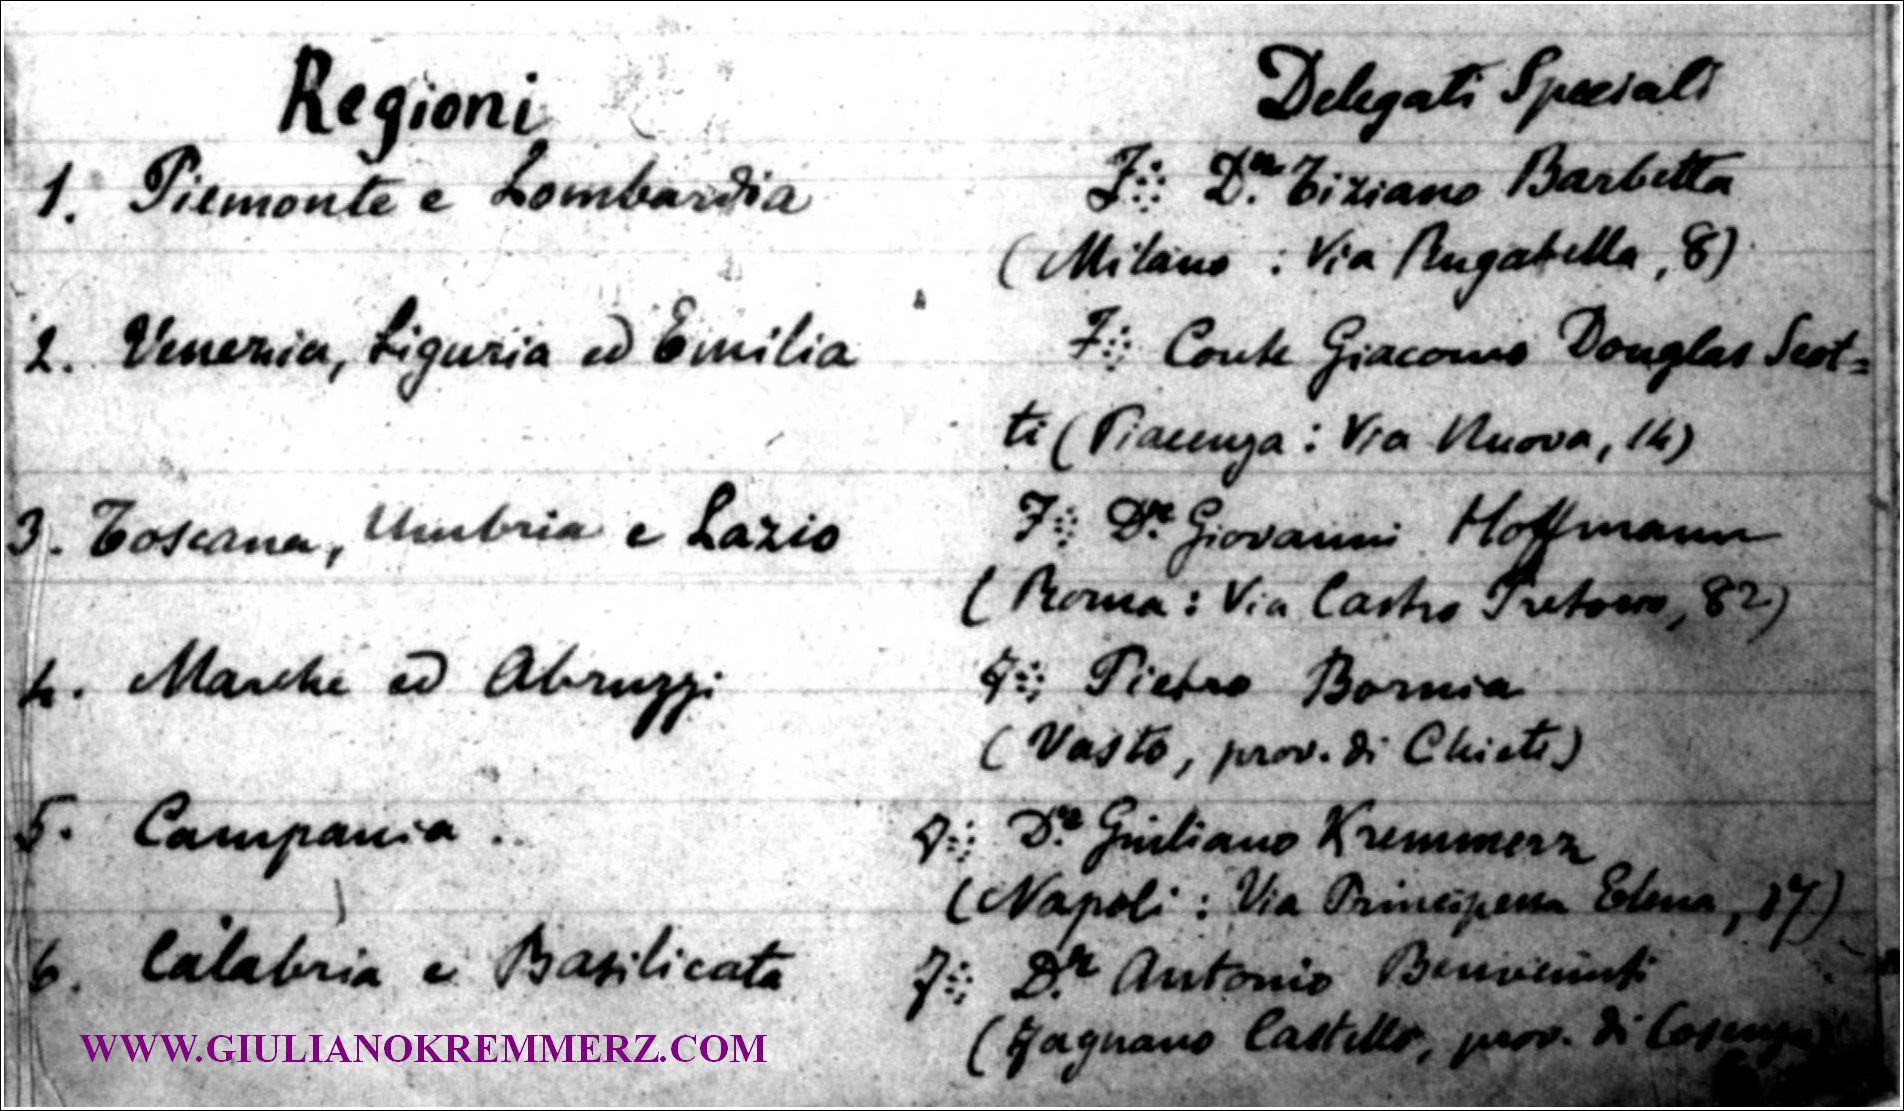 Regioni
Delegati Speciali
1. Piemonte e Lombardia
F∴ D.r Tiziano Barbetta
(Milano : Via Rugabella, 8)
2. Venezia, Liguria ed Emilia
F∴ Conte Giacomo Douglas Scot=
ti (Piacenza : Via Nuova, 14)
3. Toscana, Umbria e Lazio
F∴ D.r Giovanni Hoffmann
(Roma : Via Castro Pretorio, 82)
4. Marche ed Abruzzi
F∴ Pietro Bornia
(Vasto, prov. di Chieti)
5. Campania.
F∴ D.r Giuliano Kremmerz
(Napoli : Via Principessa Elena, 17)
6. Calabria e Basilicata
F∴ D.r Antonio Benvenuti
(Fagnano Castello, prov. di Cosenza)
WWW.GIULIANOKREMMERZ.COM